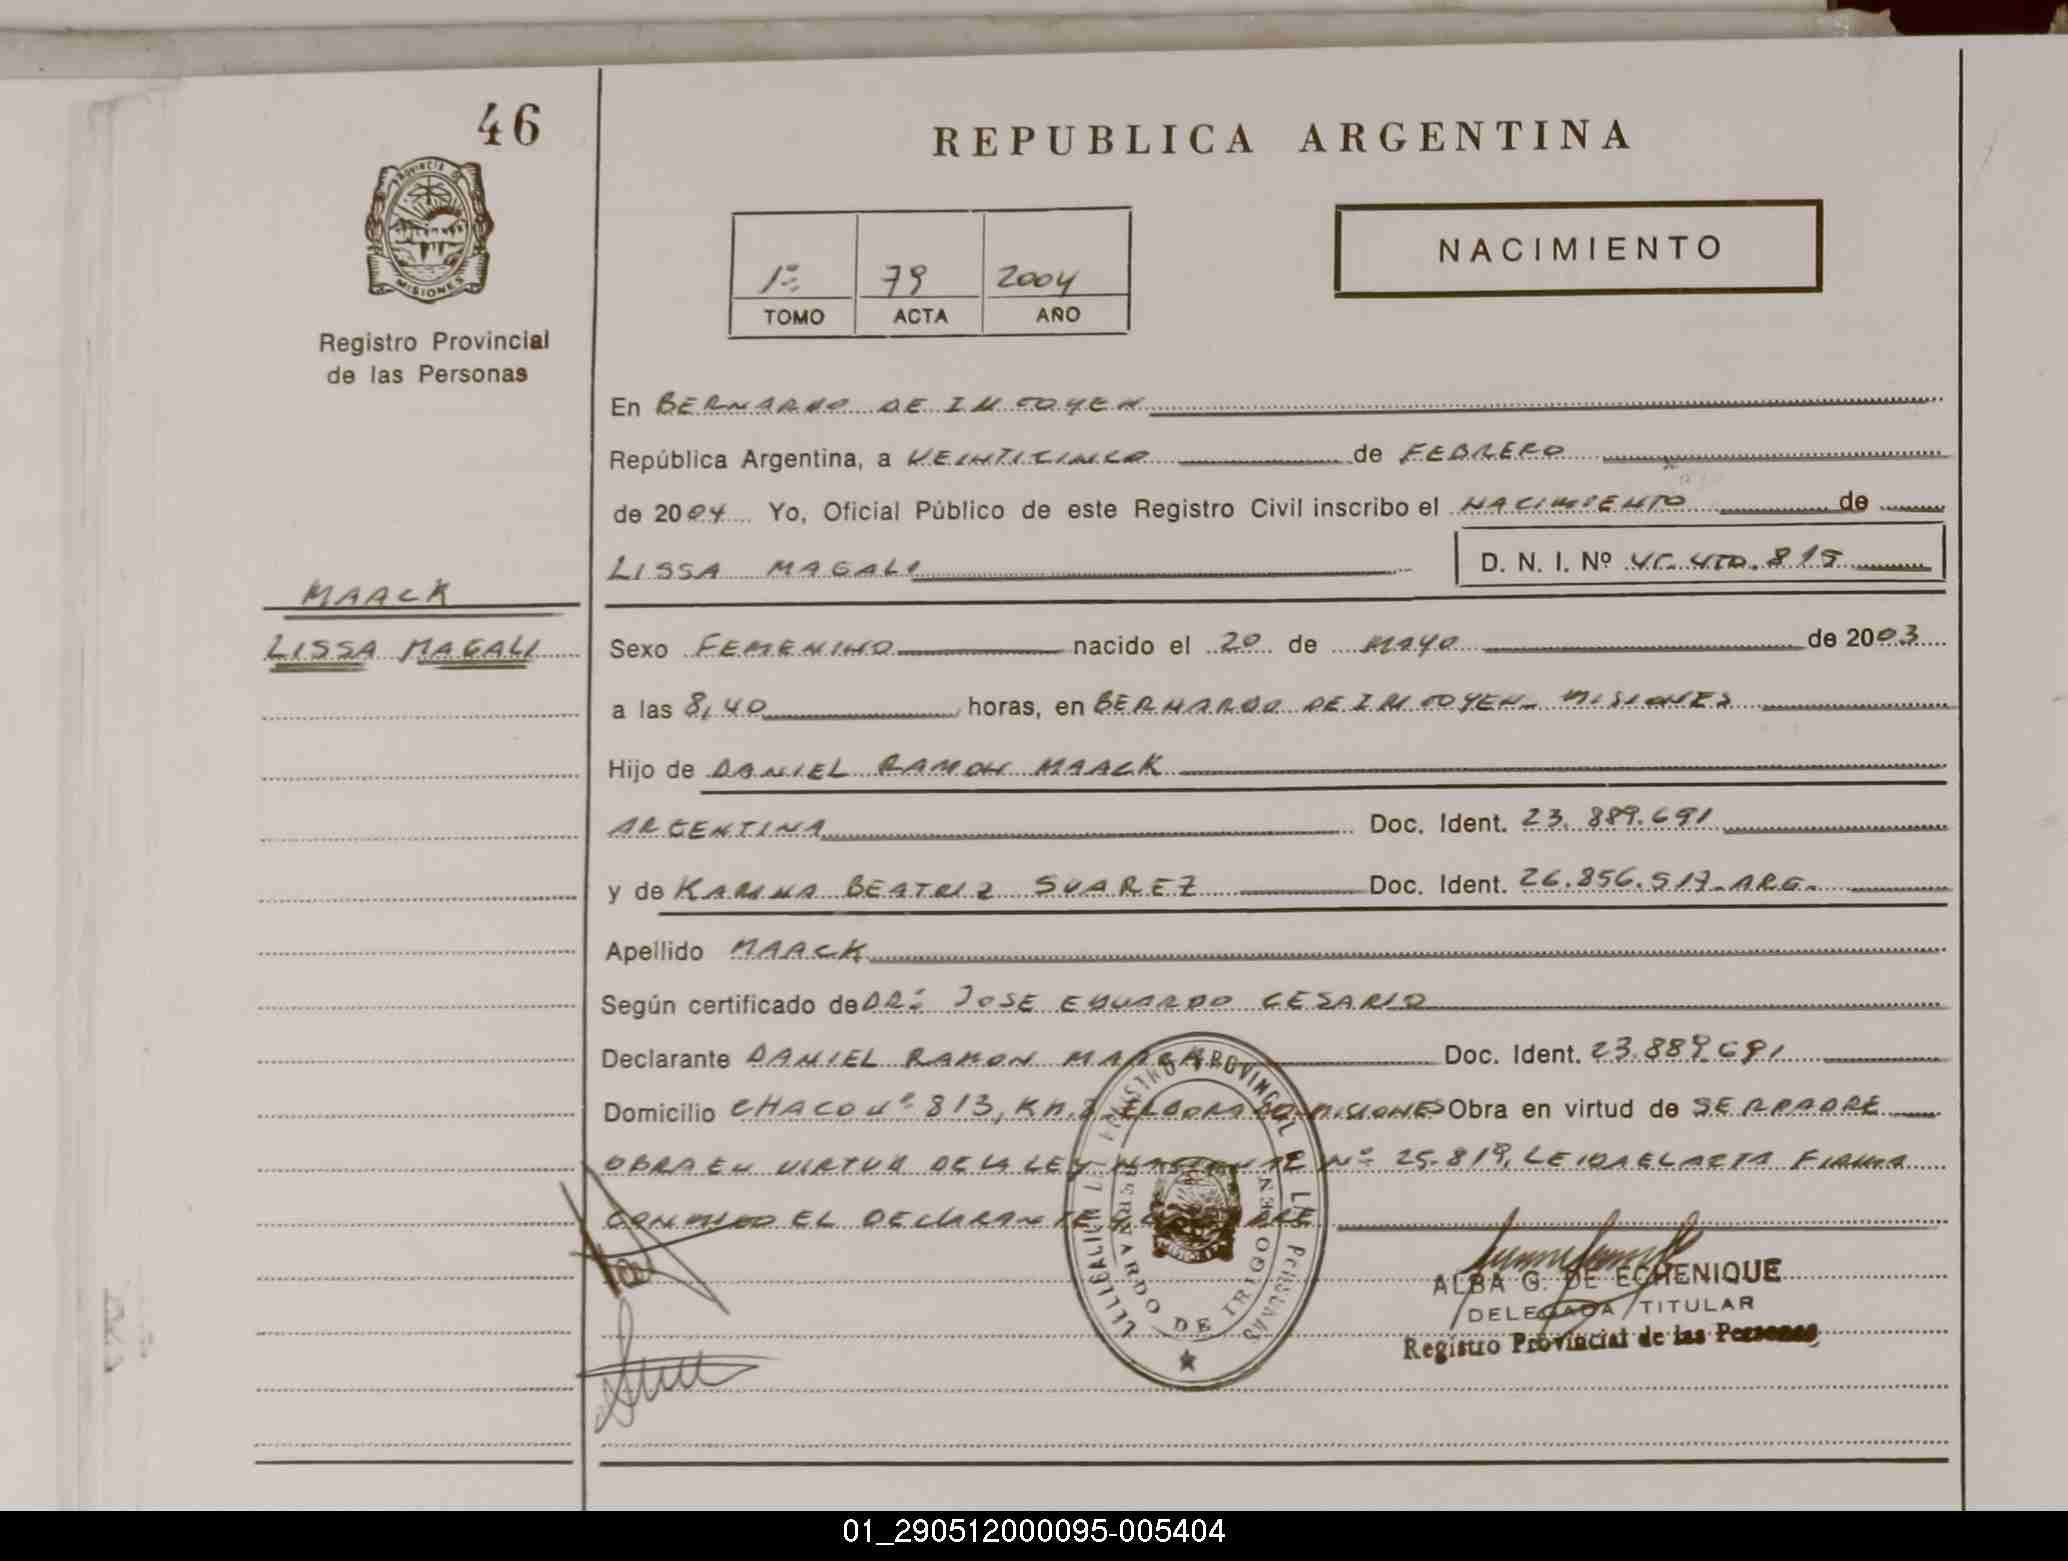 46
REPUBLICA ARGENTINA
PROVINCIA DE
MISIONES
Registro Provincial
de las Personas
NACIMIENTO
1º 79 2004
TOMO ACTA AÑO
En BERNARDO DE IRIGOYEN
República Argentina, a VEINTICINCO de FEBRERO
de 2004 Yo, Oficial Público de este Registro Civil inscribo el NACIMIENTO de
LISSA MAGALI D. N. I. Nº 815
MAACK
LISSA MAGALI
Sexo FEMENINO nacido el 20 de MAYO de 2003
a las 8,40 horas, en BERNARDO DE IRIGOYEN - MISIONES
Hijo de DANIEL RAMON MAACK
ARGENTINA Doc. Ident. 23.889.691
y de KARINA BEATRIZ SUAREZ Doc. Ident. 26.856.517-ARG.
Apellido MAACK
Según certificado de DR: JOSE EDUARDO CESARIO
Declarante DANIEL RAMON MAACK Doc. Ident. 23.889.691
Domicilio CHACO Nº 813, KM. 8 ELDORADO MISIONES Obra en virtud de SER PADRE
OBRA EN VIRTUD DE LA LEY NACIONAL Nº 25.819, LEIDA EL ACTA FIRMA
CONMIGO EL DECLARANTE Y MADRE
REGISTRO PROVINCIAL DE LAS PERSONAS
BERNARDO DE IRIGOYEN
ALBA G. DE ECHENIQUE
DELEGADA TITULAR
Registro Provincial de las Personas
01_290512000095-005404